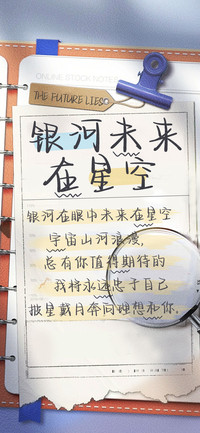 ONLINE STOCK NOTE
THE FUTURE LIES
银河未来
在星空
银河在眼中未来在星空
宇宙山河浪漫,
总有你值得期待的
我将永远忠于自己
披星戴月奔向理想和你.